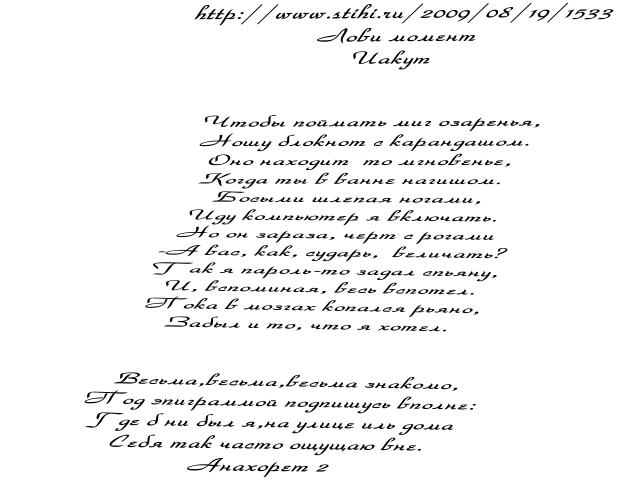 http://www.stihi.ru/2009/08/19/1533
Лови момент
Иакут
Чтобы поймать миг озаренья,
Ношу блокнот с карандашом.
Оно находит то мгновенье,
Когда ты в ванне нагишом.
Босыми шлепая ногами,
Иду компьютер я включать.
Но он зараза, черт с рогами
-А вас, как, сударь, величать?
Так я пароль-то задал спьяну,
И, вспоминая, весь вспотел.
Пока в мозгах копался рьяно,
Забыл и то, что я хотел.
Весьма,весьма,весьма знакомо,
Под эпиграммой подпишусь вполне:
Где б ни был я,на улице иль дома
Себя так часто ощущаю вне.
Анахорет 2